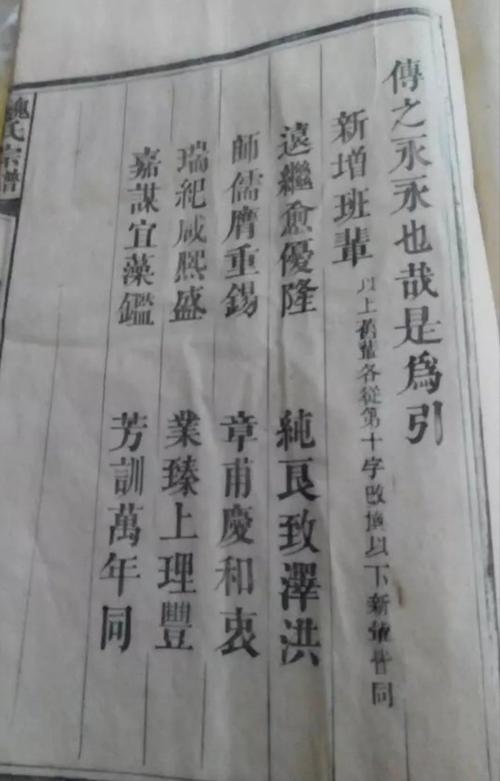 傳之永永也哉是爲引
新增班輩 以上舊輩各從第十字改換以下新輩皆同
遠繼愈優隆 純良致澤洪
師儒膺重錫 章甫慶和衷
瑞紀咸熙盛 業臻上理豐
嘉謀宜藻鑑 芳訓萬年同
魏氏宗譜